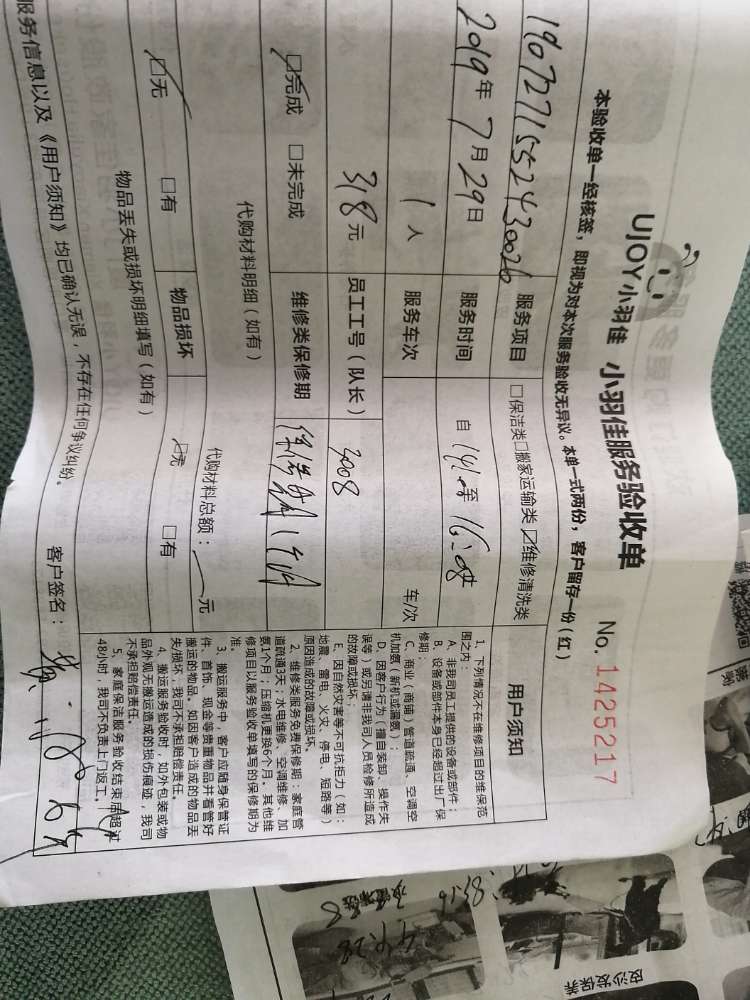 UJOY小羽佳 小羽佳服务验收单
No. 1425217
本验收单一经核签，即视为对本次服务验收无异议。本单一式两份，客户留存一份（红）
1907271552430026 服务项目 □保洁类□搬家运输类☑维修清洗类 用户须知
2019年7月29日 服务时间 自 至 16:08
1人 服务车次 车/次
318元 员工工号（队长） 3008
☑完成 □未完成 维修类保修期
代购材料明细（如有） 代购材料总额： 元
☑无 □有 物品损坏 ☑无 □有
物品丢失或损坏明细填写（如有）
服务信息以及《用户须知》均已确认无误，不存在任何争议纠纷。 客户签名：
1、下列情况不在维修项目的维保范
围之内：
A、非我司员工提供的设备或部件；
B、设备或部件本身已经超过出厂保
修期；
C、商业（商铺）管道疏通、空调空
机加氨（新机或漏氨）；
D、因客户行为（擅自装卸、操作失
误等）或另请非我司人员检修所造成
的故障或损坏；
E、因自然灾害等不可抗拒力（如：
地震、雷电、火灾、停电、短路等）
原因造成的故障或损坏。
2、维修类服务免费保修期：家庭管
道疏通3天；水电维修、空调维修、加
氨1个月；压缩机更换6个月。其他维
修项目以服务验收单填写的保修期为
准。
3、搬运服务中，客户应随身保管证
件、首饰、现金等贵重物品并看管好
搬运的物品。如因客户造成的物品丢
失/损坏，我司不承担赔偿责任。
4、搬运服务验收时，如外包装或物
品外观无搬运造成的损伤痕迹，我司
不承担赔偿责任。
5、家庭保洁服务验收结束后超过
48小时，我司不负责上门返工。
皮沙发保养